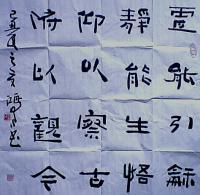 虛能引龢
靜能生悟
仰以察古
俯以觀今